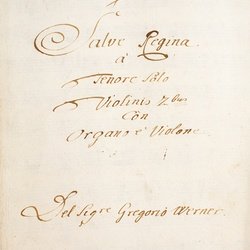 Salve Regina.
à
Tenore Solo
Violinis 2bus
Con
Organo è Violone.
Del Sigre Gregorio Werner.